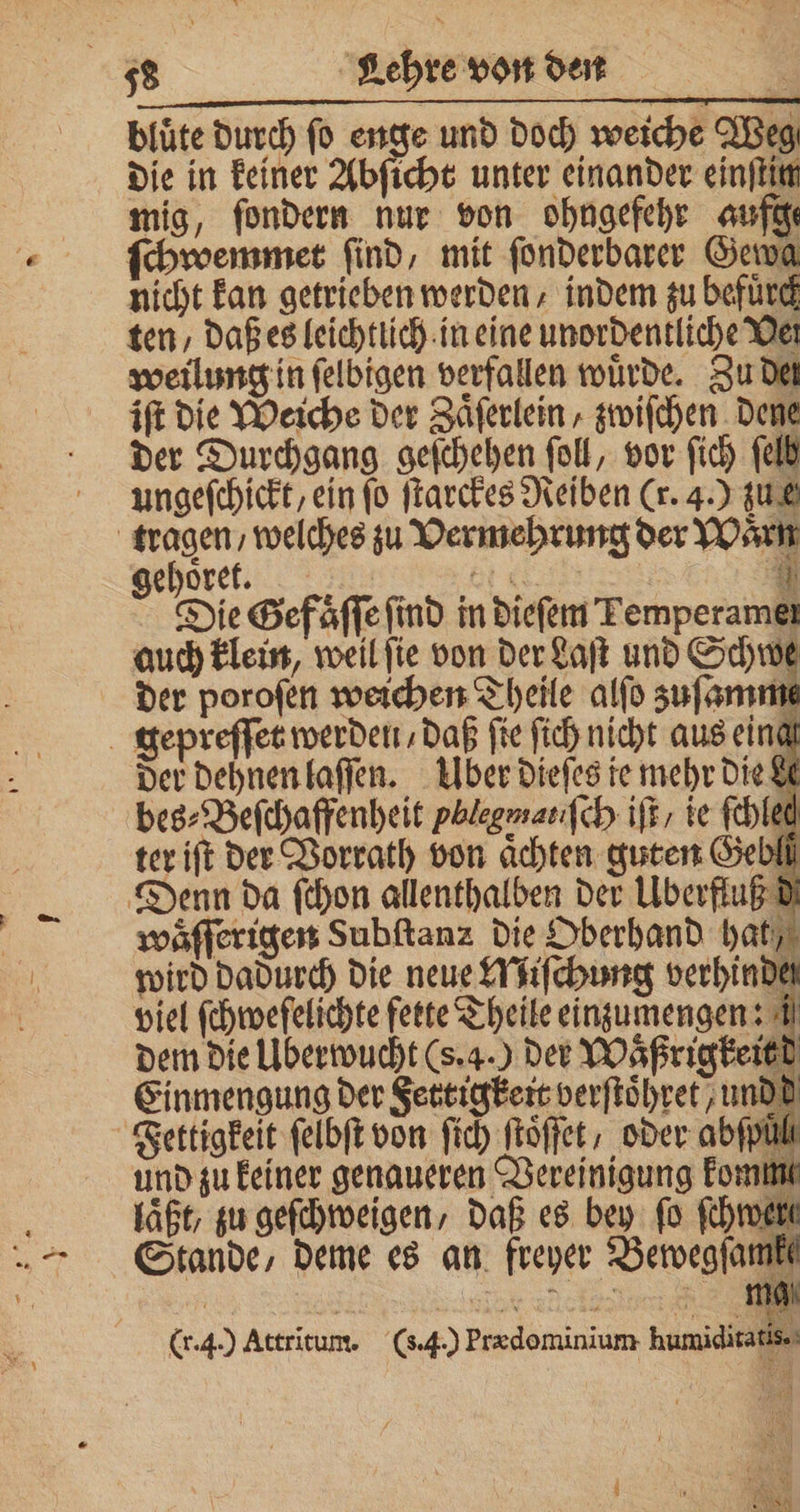 58 Lehre von den
blůte durch ſo enge und doch weiche Weg
die in keiner Abſicht unter einander einſtim
mig, ſondern nur von ohngefehr aufge
ſchwemmet ſind, mit ſonderbarer Gewa
nicht kan getrieben werden, indem zu befůrch
ten, daß es leichtlich in eine unordentliche Ver
weilung in ſelbigen verfallen wůrde. Zu der
iſt die Weiche der Zåſerlein, zwiſchen dene
der Durchgang geſchehen ſoll, vor ſich ſelb
ungeſchickt, ein ſo ſtarckes Reiben (r. 4.) zu e
tragen, welches zu Vermehrung der Wårm
gehoͤret.
Die Gefåſſe ſind in dieſem Temperamen
auch klein, weil ſie von der Laſt und Schwe
der poroſen weichen Theile alſo zuſamme
gepreſſet werden, daß ſie ſich nicht aus einan
der dehnen laſſen. Uber dieſes ie mehr die Le
bes⸗Beſchaffenheit phlegmatiſch iſt, ie ſchlech
ter iſt der Vorrath von åchten guten Geblů
Denn da ſchon allenthalben der Uberfluß d
wåſſerigen Subſtanz die Oberhand hat,
wird dadurch die neue Miſchung verhinder
viel ſchwefelichte fette Theile einzumengen: i
dem die Uberwucht (s.4.) der Wåßrigkeit d
Einmengung der Fettigkeit verſtoͤhret, und d
Fettigkeit ſelbſt von ſich ſtoͤſſet, oder abſpůl
und zu keiner genaueren Vereinigung komme
låßt, zu geſchweigen, daß es bey ſo ſchwere
Stande, deme es an freyer Bewegſamke
ma
(r.4.) Attritum. (s.4.) Prædominium humiditatis.